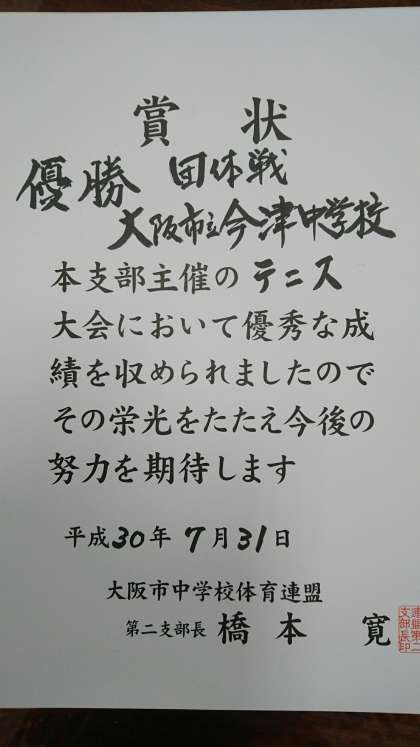 賞状
優勝 団体戦
大阪市立今津中学校
本支部主催のテニス
大会において優秀な成
績を収められましたので
その栄光をたたえ今後の
努力を期待します
平成30年7月31日
大阪市中学校体育連盟
第二支部長 橋本 寛
連盟第二
支部長印